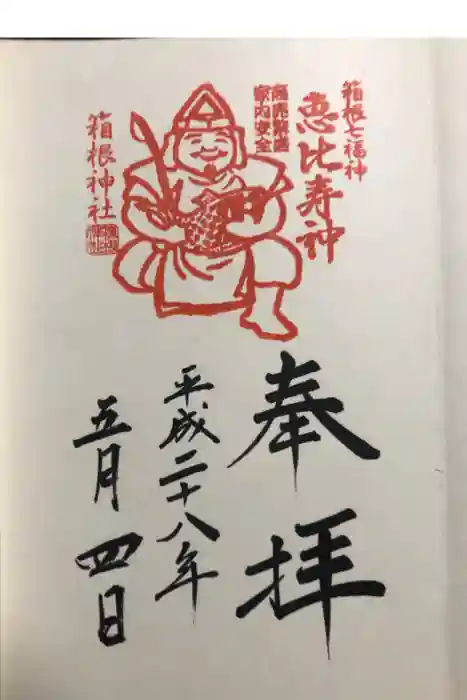 箱根七福神
恵比寿神
商売繁盛
家内安全
箱根神社
奉拝
平成二十八年
五月四日